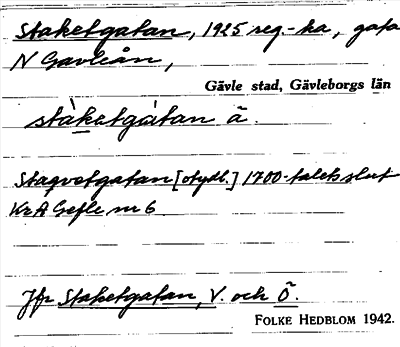 Staketgatan, 1925 reg.-ka, gata
N Gavleån,
Gävle stad, Gävleborgs län
stàketgátan ã.
Staqvetgatan [otydl.] 1700-talets slut
KrA Gefle nr 6
Jfr Staketgatan, V. och Ö.
FOLKE HEDBLOM 1942.